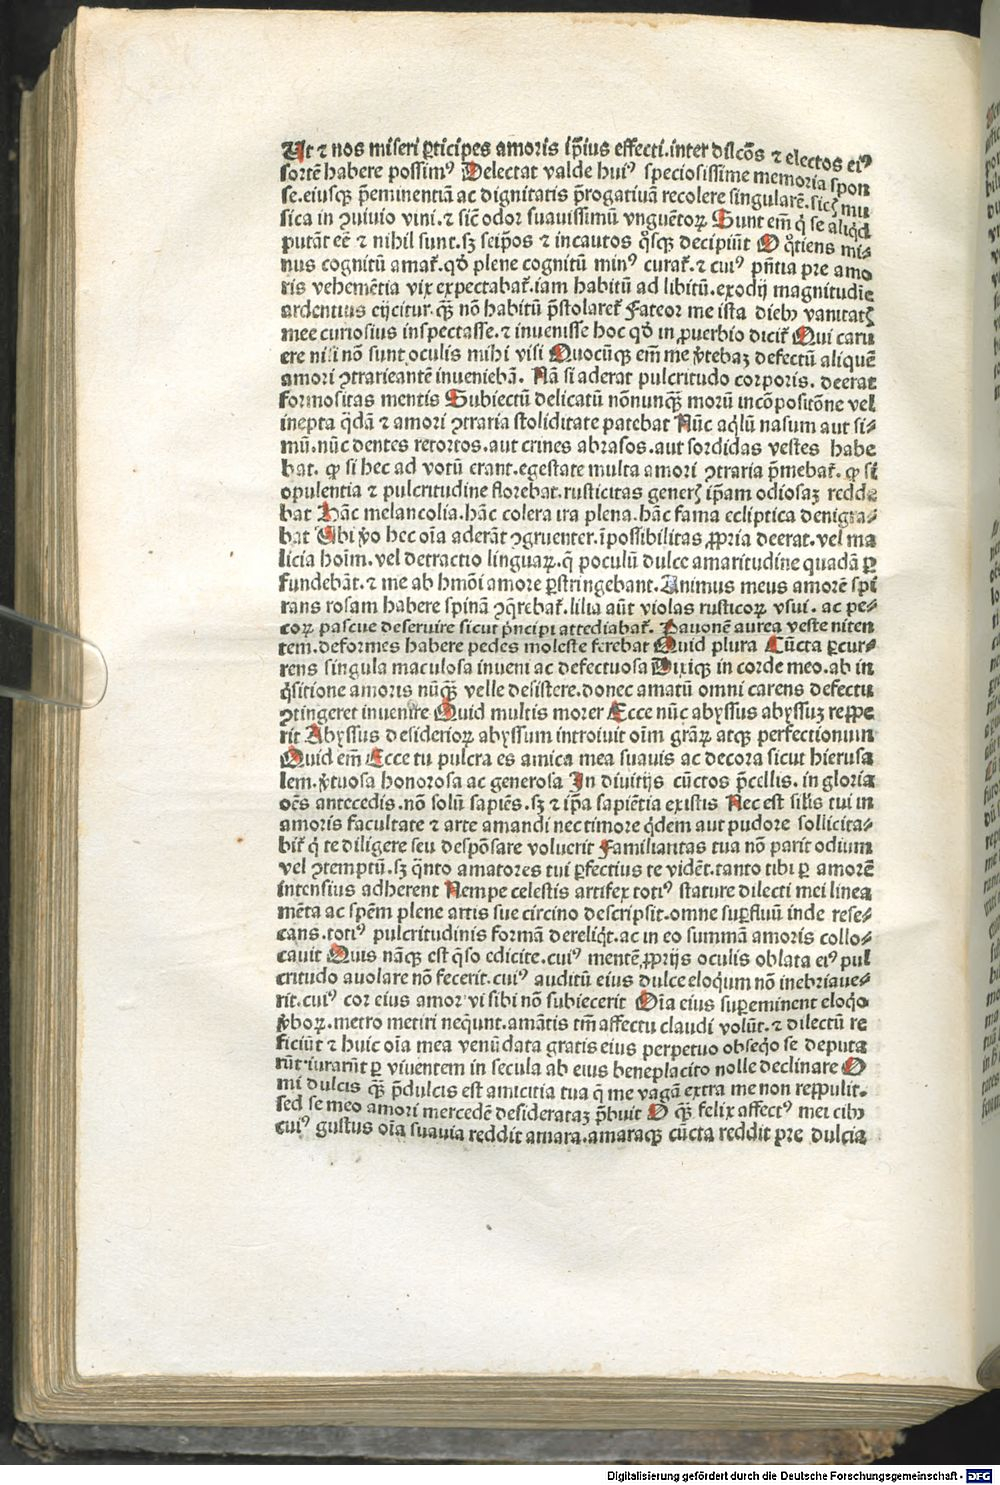 Ut ⁊ nos miseri ꝑticipes amoris ip̄ius effecti.inter dilcōs ⁊ electos eiꝰ
sortē habere possimꝰ Delectat valde huiꝰ speciosissime memoria spon
se.eiusqꝫ p̄eminentiā ac dignitatis p̄rogatiuā recolere singularē.sicꝫ mu
sica in ꝯuiuio vini.⁊ sic̄ odor suauissimū vnguētoꝝ Sunt em̄ q̇ se aliqd̄
putāt eē ⁊ nihil sunt.sꝫ seip̄os ⁊ incautos q̊sqꝫ decipiūt O q̊tiens mi⸗
nus cognitū amaṫ.qđ plene cognitū minꝰ curaṫ.⁊ cuiꝰ pn̄tia pre amo
ris vehemētia vix expectabaṫ.iam habitū ad libitū.exodij magnitudīe
ardentius eijcitur.qꝫ̄ nō habitū p̄stolareṫ Fateor me ista diebꝫ vanitatꝭ
mee curiosius inspectasse.⁊ inuenisse hoc qđ in ꝓuerbio diciṫ Qui caru
ere nisi nō sunt oculis mihi visi Quocūqꝫ em̄ me v̇tebaꝫ defectū aliquē
amori ꝯtrarieantē inueniebā. Nā si aderat pulcritudo corporis. deerat
formositas mentis Subiectū delicatū nōnunqꝫ̄ morū incōpositōne vel
inepta q̄dā ⁊ amori ꝯtraria stoliditate patebat Nūc aq̇lū nasum aut si⸗
mū.nūc dentes retortos.aut crines abrasos.aut sordidas vestes habe
bat. qꝙ si hec ad votū erant.egestate multa amori ꝯtraria p̄mebaṫ. ꝙ si
opulentia ⁊ pulcritudine florebat.rusticitas generꝭ ip̄am odiosaꝫ redde
bat Hāc melancolia.hāc colera ira plena.hāc fama ecliptica denigra⸗
bat Ubi v̇o hec oīa aderāt ꝯgruenter.īpossibilitas ꝓpria deerat.vel ma
licia hoīm.vel detractio linguaꝝ.q̄ poculū dulce amaritudine quadā ꝑ
fundebāt.⁊ me ab hmōi amore ꝑstringebant.Animus meus amorē spī
rans rosam habere spinā ꝯq̇rebaṫ.lilia aūt violas rusticoꝝ vsui. ac pe⸗
coꝝ pascue deseruire sicut p̄ncipi attediabaṫ. Pauonē aurea veste niten
tem.deformes habere pedes moleste ferebat Quid plura Cūcta ꝑcur⸗
rens singula maculosa inueni ac defectuosa Dixiqꝫ in corde meo.ab in
q̇sitione amoris nūqꝫ̄ velle desistere.donec amatū omni carens defectu
ꝯtingeret inuenire Quid multis morer Ecce nūc abyssus abyssuꝫ reppe
rit Abyssus desiderioꝝ abyssum introiuit oīm grāꝝ atqꝫ perfectionum
Quid em̄ Ecce tu pulcra es amica mea suauis ac decora sicut hierusa
lem.v̇tuosa honorosa ac generosa In diuitijs cūctos p̄cellis.in gloria
oēs antecedis.nō solū sapiēs.sꝫ ⁊ ip̄a sapiētia existis Nec est silis tui in
amoris facultate ⁊ arte amandi nec timore q̇dem aut pudore sollicita⸗
biṫ q̇ te diligere seu despōsare voluerit Familiaritas tua nō parit odium
vel ꝯtemptū.sꝫ q̄nto amatores tui ꝑfectius te vidēt.tanto tibi ꝑ amorē
intensius adherent Nempe celestis artifex totiꝰ stature dilecti mei linea
mēta ac spēm plene artis sue circino descripsit.omne suꝑfluū inde rese⸗
cans.totiꝰ pulcritudinis formā dereliq̇t.ac in eo summā amoris collo⸗
cauit Quis nāqꝫ est q̄so edicite.cuiꝰ mentē ꝓprijs oculis oblata eiꝰ pul
critudo auolare nō fecerit.cuiꝰ auditū eius dulce eloq̇um nō inebriaue⸗
rit.cuiꝰ cor eius amor vi sibi nō subiecerit Oīa eius suꝑeminent eloq̇o
v̇boꝝ.metro metiri neq̇unt.amātis tm̄ affectu claudi volūt.⁊ dilectū re
ficiūt ⁊ huic oīa mea venūdata gratis eius perpetuo obseq̇o se deputa
rūt iurarūt ꝑ viuentem in secula ab eius beneplacito nolle declinare O
mi dulcis qꝫ̄ p̄dulcis est amicitia tua q̄ me vagā extra me non reppulit.
sed se meo amori mercedē desiderataꝫ p̄buit O qꝫ̄ felix affectꝰ mei cibꝫ
cuiꝰ gustus oīa suauia reddit amara.amaraqꝫ cūcta reddit pre dulcia
Digitalisierung gefördert durch die Deutsche Forschungsgemeinschaft - DFG